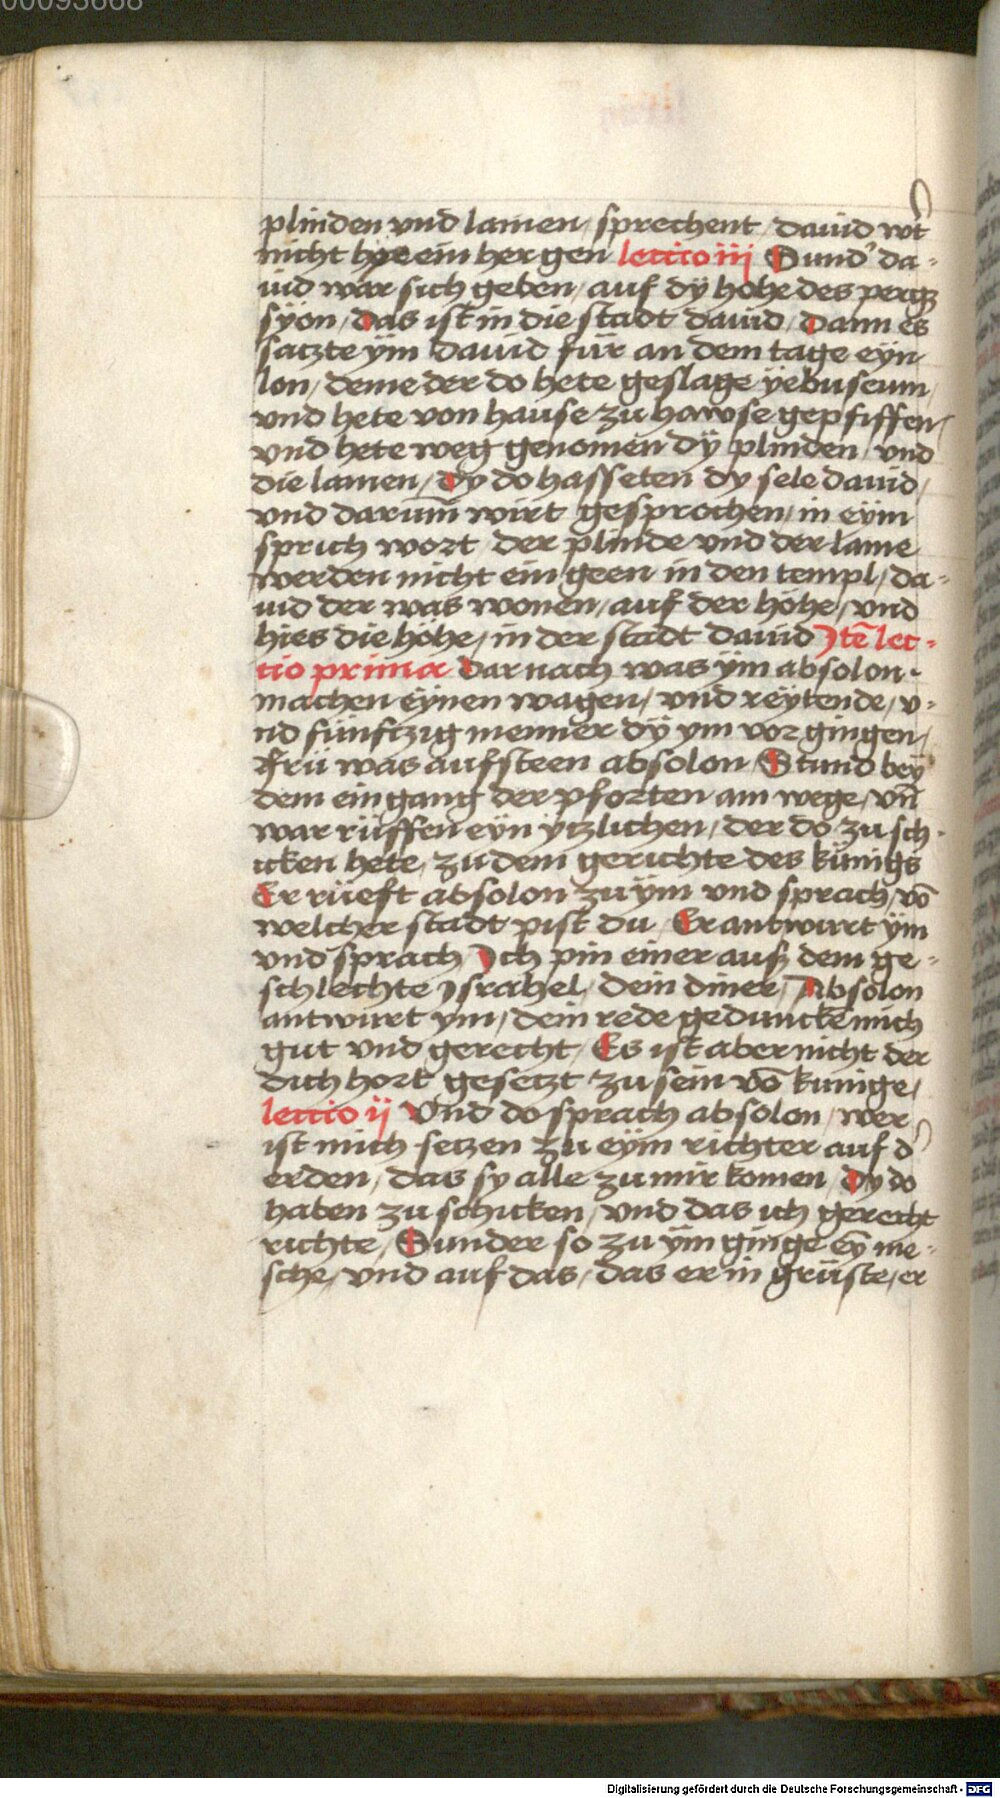 00093668
plinden vnd lamen / sprechent / dauid wt
nicht hye ein her gen lectio iij Sund' da-
uid war sich geben / auf dy hohe des pergs
sÿon / das ist in die stadt dauid / Dann es
satzte ÿm dauid für an dem tage eyn
lon / deme der do hete geslage ÿebuseum
vnd hete von hause zu hawse gepfiffen /
vnd hete weg genomen dÿ plinden / vnd
die lamen / dy do hasseten dy sele dauid /
vnd darum̄ wirt gesprochen / in eÿm
sprich wort / der plinde vnd der lame
werden nicht ein geen in den templ / da-
uid der was wonen / auf der höhe / vnd
hies die höhe / in der stadt dauid Jtē lec-
tio prima Dar nach was ÿm absolon
machen eÿnen wagen / vnd reÿtende / v-
nd fünftzig menner dÿ ym vor gingen /
frü was aufsteen absolon / Stund beÿ
dem eingang der pforten am wege / vn̄
war rüffen eyn ytzlichen / der do zu sch-
icken hete / zu dem gerichte des künigs
Er rüeft absolon zu ÿm vnd sprach / vō
welcher stadt pist du / Er antwurt ÿm
vnd sprach Jch pin einer auß dem ge-
schlechte Jsrahel / dein diner / Absolon
antwurt ym / dein rede geduncke mich
gut vnd gerecht / Es ist aber nicht der
dich hort gesetzt zu sein vō kunige /
lectio ij Vnd do sprach absolon / wer
ist mich setzen zu eÿm richter auf d'
erden / das sy alle zu mir komen / Dy do
haben zu schicken / vnd das ich gerecht
richte / Sunder so zu ÿm ginge eȳ me-
sche / vnd auf das / das er in grüste / er
Digitalisierung gefördert durch die Deutsche Forschungsgemeinschaft - DFG